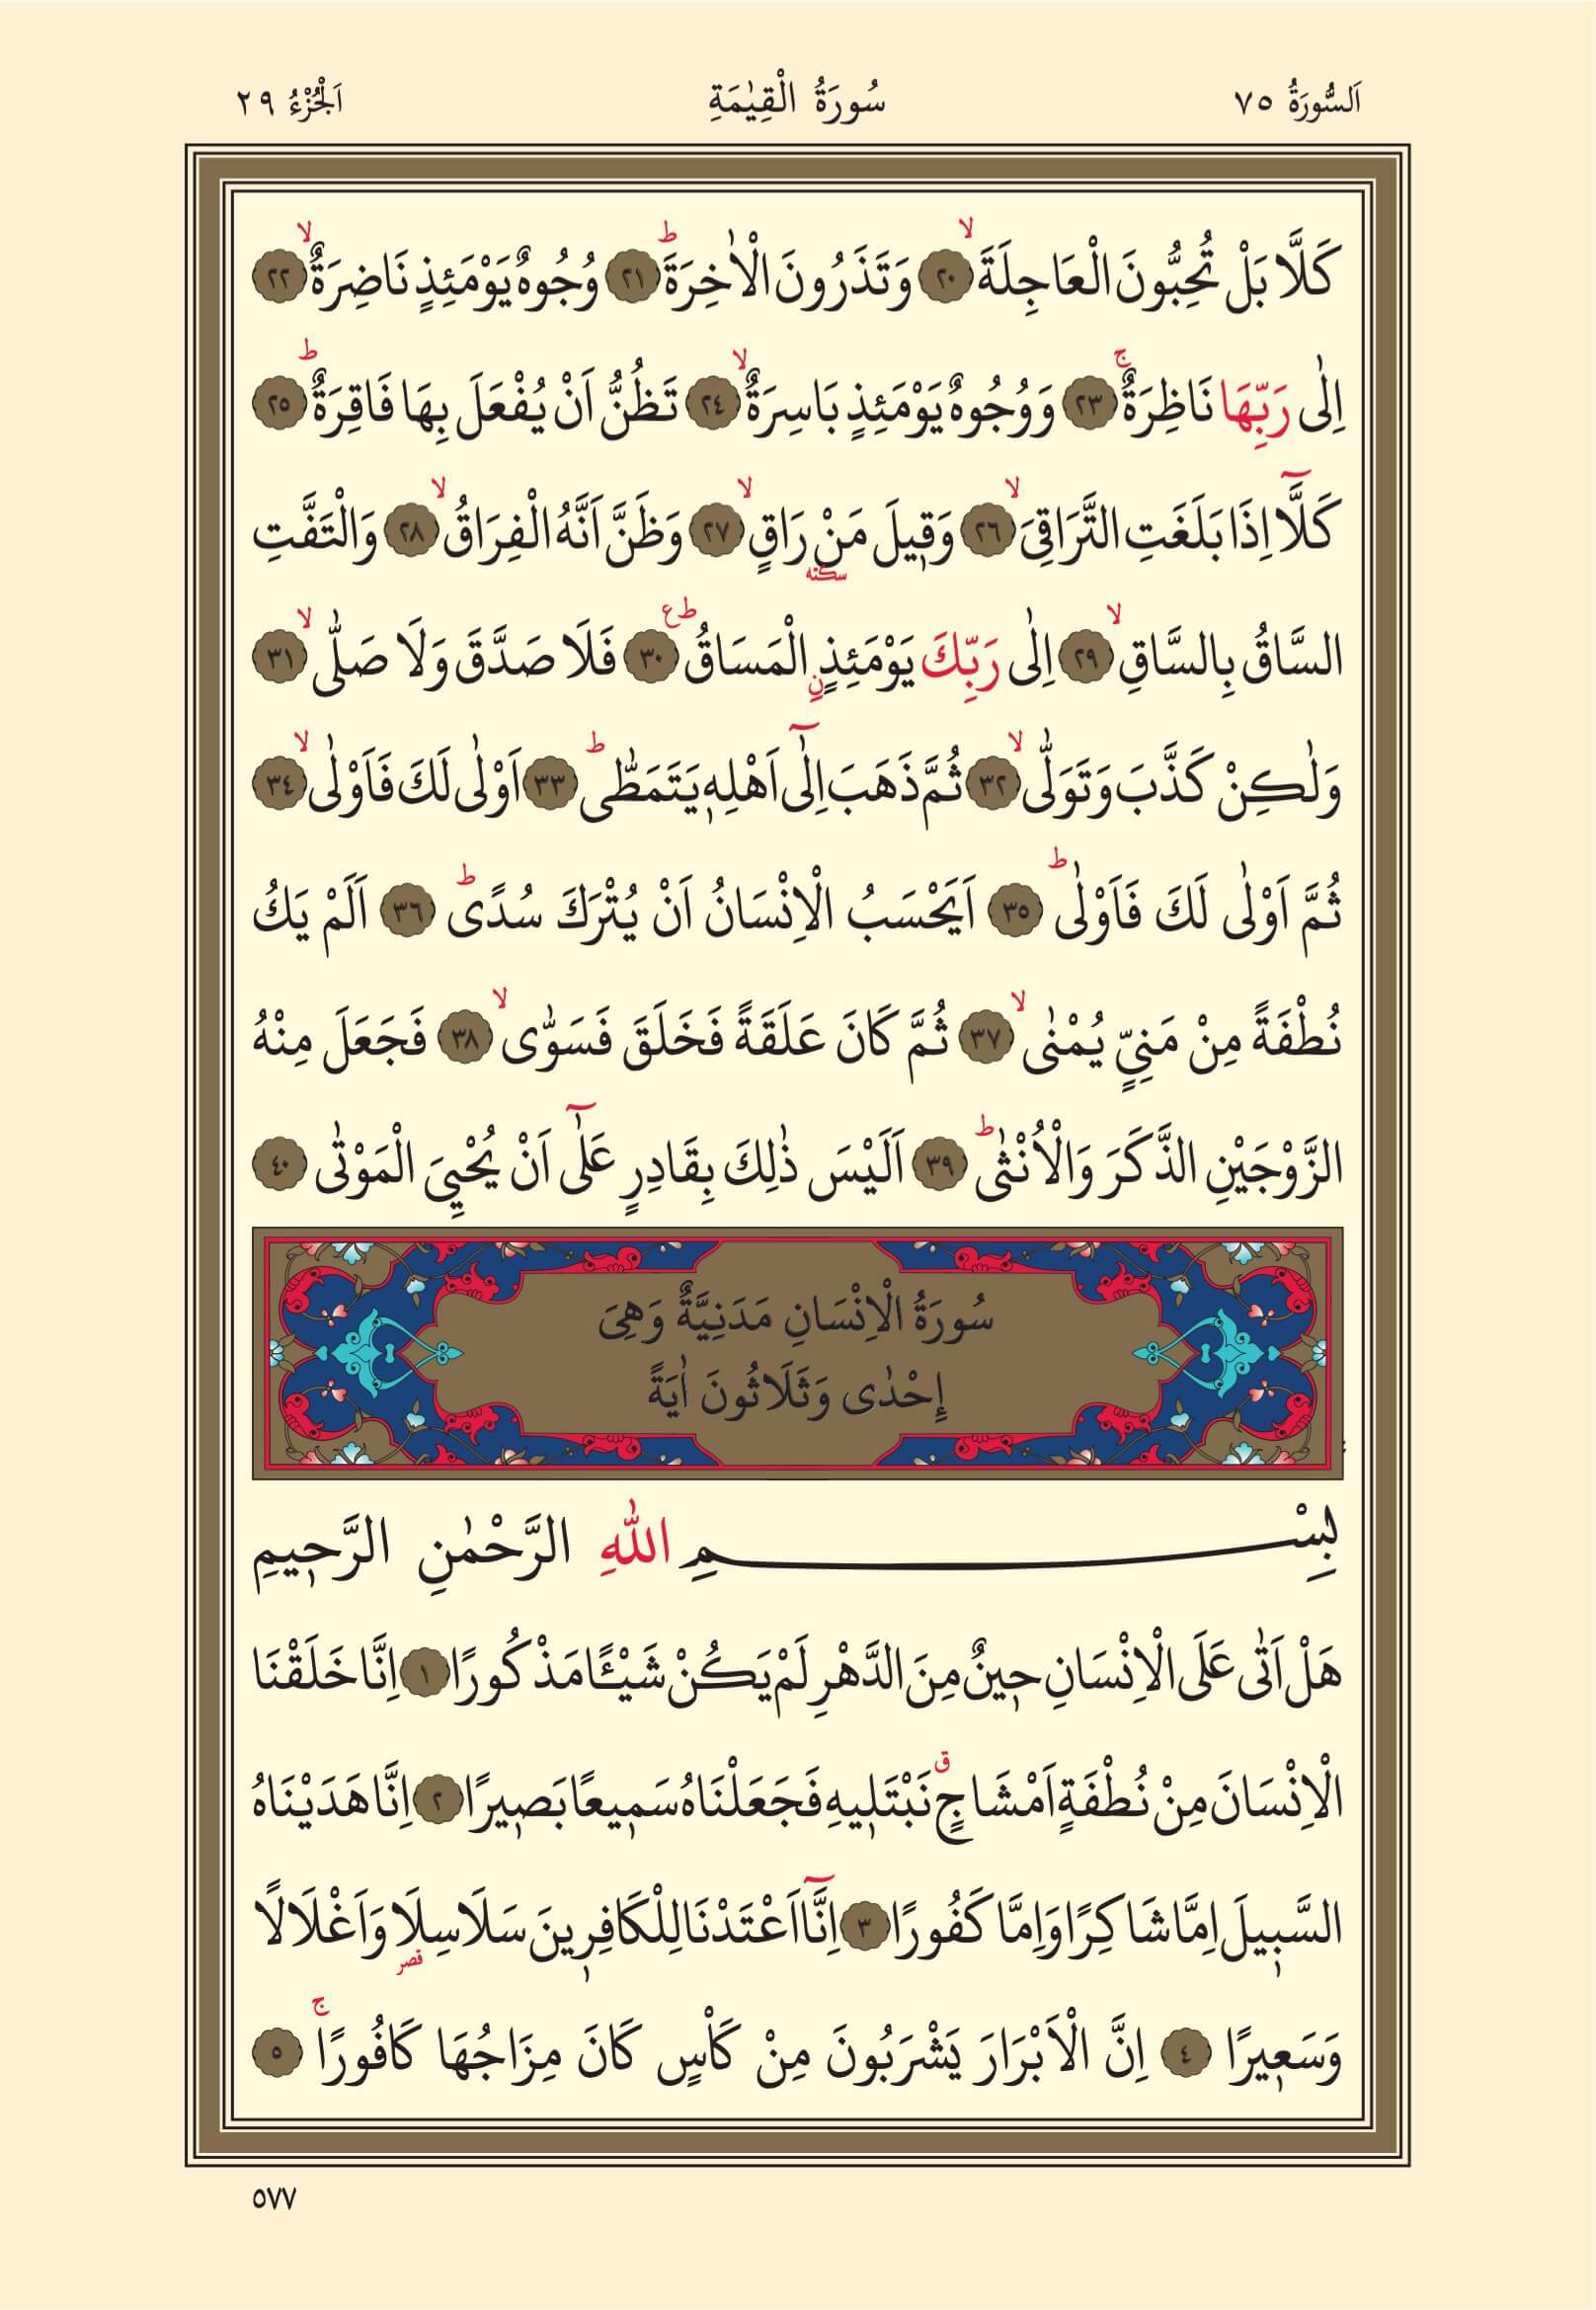 اَلسُّورَةُ ٧٥ سُورَةُ الْقِيٰمَةِ اَلْجُزْءُ ٢٩
كَلَّا بَلْ تُحِبُّونَ الْعَاجِلَةَۙ ٢٠ وَتَذَرُونَ الْاٰخِرَةَۜ ٢١ وُجُوهٌ يَوْمَئِذٍ نَاضِرَةٌۙ ٢٢
اِلٰى رَبِّهَا نَاظِرَةٌۚ ٢٣ وَوُجُوهٌ يَوْمَئِذٍ بَاسِرَةٌۙ ٢٤ تَظُنُّ اَنْ يُفْعَلَ بِهَا فَاقِرَةٌۜ ٢٥
كَلَّٓا اِذَا بَلَغَتِ التَّرَاقِيَۙ ٢٦ وَق۪يلَ مَنْ سكته رَاقٍۙ ٢٧ وَظَنَّ اَنَّهُ الْفِرَاقُۙ ٢٨ وَالْتَفَّتِ
السَّاقُ بِالسَّاقِۙ ٢٩ اِلٰى رَبِّكَ يَوْمَئِذٍ نِ الْمَسَاقُۜ ع ٣٠ فَلَا صَدَّقَ وَلَا صَلّٰىۙ ٣١
وَلٰكِنْ كَذَّبَ وَتَوَلّٰىۙ ٣٢ ثُمَّ ذَهَبَ اِلٰٓى اَهْلِه۪ يَتَمَطّٰىۜ ٣٣ اَوْلٰى لَكَ فَاَوْلٰىۙ ٣٤
ثُمَّ اَوْلٰى لَكَ فَاَوْلٰىۜ ٣٥ اَيَحْسَبُ الْاِنْسَانُ اَنْ يُتْرَكَ سُدًىۜ ٣٦ اَلَمْ يَكُ
نُطْفَةً مِنْ مَنِيٍّ يُمْنٰىۙ ٣٧ ثُمَّ كَانَ عَلَقَةً فَخَلَقَ فَسَوّٰىۙ ٣٨ فَجَعَلَ مِنْهُ
الزَّوْجَيْنِ الذَّكَرَ وَالْاُنْثٰىۜ ٣٩ اَلَيْسَ ذٰلِكَ بِقَادِرٍ عَلٰٓى اَنْ يُحْيِيَ الْمَوْتٰى ٤٠
سُورَةُ الْاِنْسَانِ مَدَنِيَّةٌ وَهِيَ
إِحْدٰى وَثَلَاثُونَ اٰيَةً
بِسْمِ اللّٰهِ الرَّحْمٰنِ الرَّح۪يمِ
هَلْ اَتٰى عَلَى الْاِنْسَانِ ح۪ينٌ مِنَ الدَّهْرِ لَمْ يَكُنْ شَيْـًٔا مَذْكُورًا ١ اِنَّا خَلَقْنَا
الْاِنْسَانَ مِنْ نُطْفَةٍ اَمْشَاجٍۗ نَبْتَل۪يهِ فَجَعَلْنَاهُ سَم۪يعًا بَص۪يرًا ٢ اِنَّا هَدَيْنَاهُ
السَّب۪يلَ اِمَّا شَاكِرًا وَاِمَّا كَفُورًا ٣ اِنَّٓا اَعْتَدْنَا لِلْكَافِر۪ينَ سَلَاسِلَا قصر وَاَغْلَالًا
وَسَع۪يرًا ٤ اِنَّ الْاَبْرَارَ يَشْرَبُونَ مِنْ كَأْسٍ كَانَ مِزَاجُهَا كَافُورًاۚ ٥
٥٧٧